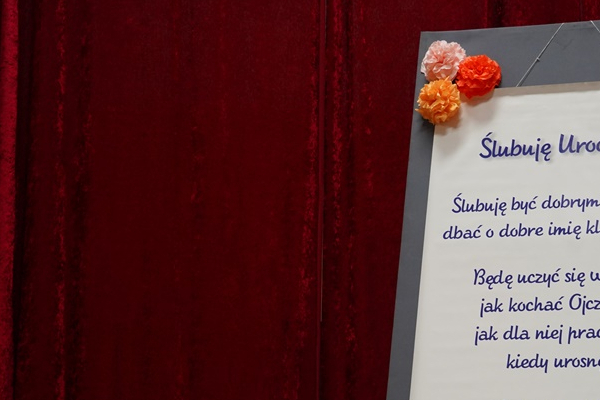 Ślubuję Uroc
Ślubuję być dobrym
dbać o dobre imię kl
Będę uczyć się w
jak kochać Ojcz
jak dla niej prac
kiedy urosn